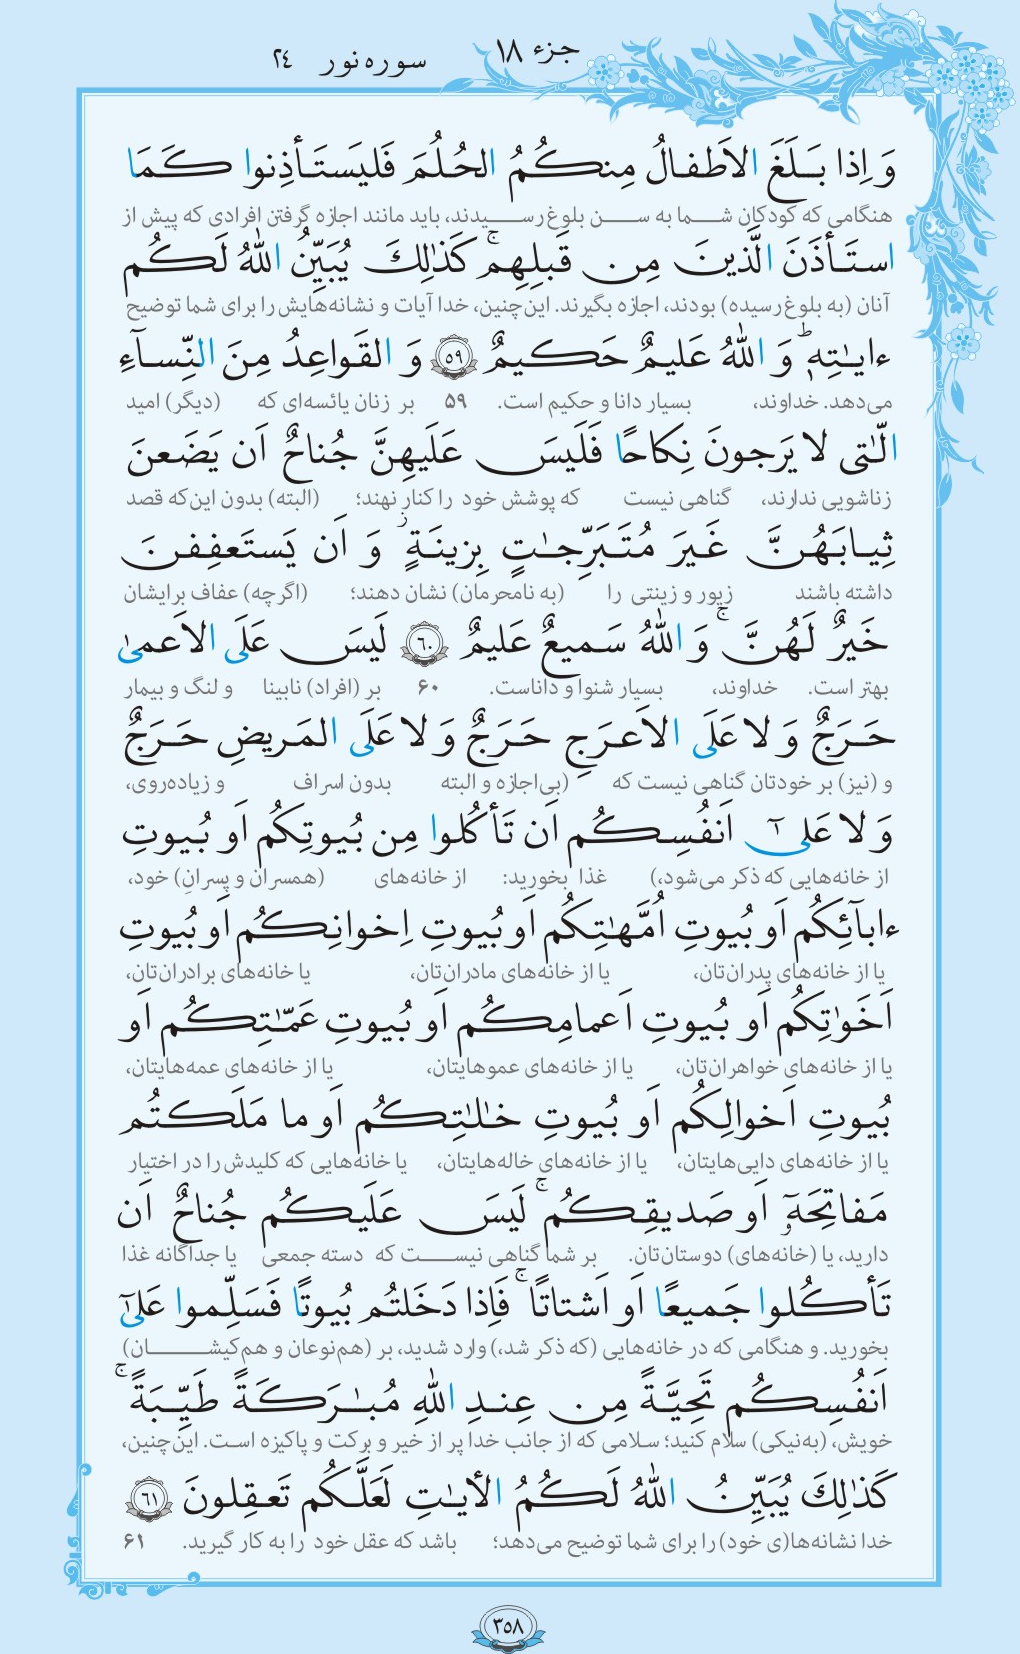 جزء ۱۸
سوره نور ۲۴
وَ اِذا بَـلَـغَ الاَطفـالُ مِنكُـمُ الحُـلُـمَ فَليَستَـأذِنوا كَـمَـا
هنگامی که کودکان شما به سن بلوغ رسیدند، باید مانند اجازه گرفتن افرادی که پیش از
استَـأذَنَ الَّذينَ مِن قَبلِهِم ۚ كَذٰلِكَ يُبَيِّنُ اللّٰهُ لَكُم
آنان (به بلوغ رسیده) بودند، اجازه بگیرند. این‌چنین، خدا آیات و نشانه‌هایش را برای شما توضیح
ءايـٰتِهٖ ؕ وَ اللّٰهُ عَليمٌ حَكيمٌ ۵۹ وَ القَواعِدُ مِنَ النِّسـآءِ
می‌دهد. خداوند، بسیار دانا و حکیم است. ۵۹ بر زنان یائسه‌ای که (دیگر) امید
الّٰتى لا يَرجونَ نِكاحًا فَلَيسَ عَلَيهِنَّ جُناحٌ اَن يَضَعنَ
زناشویی ندارند، گناهی نیست که پوشش خود را کنار نهند؛ (البته) بدون این‌که قصد
ثِيـابَهُـنَّ غَيرَ مُتَبَرِّجـٰتٍ بِزينَـةٍ ؗ وَ اَن يَستَعفِفنَ
داشته باشند زیور و زینتی را (به نامحرمان) نشان دهند؛ (اگرچه) عفاف برایشان
خَيرٌ لَهُنَّ ۚ وَ اللّٰهُ سَميعٌ عَليمٌ ۶۰ لَيسَ عَلَى الاَعمىٰ
بهتر است. خداوند، بسیار شنوا و داناست. ۶۰ بر (افراد) نابینا و لنگ و بیمار
حَـرَجٌ وَ لا عَلَى الاَعـرَجِ حَـرَجٌ وَ لا عَلَى المَـريضِ حَـرَجٌ
و (نیز) بر خودتان گناهی نیست که (بی‌اجازه و البته بدون اسراف و زیاده‌روی،
وَ لا عَلىٰٓ اَنفُسِكُم اَن تَأكُلوا مِن بُيوتِكُم اَو بُيوتِ
از خانه‌هایی که ذکر می‌شود،) غذا بخورید: از خانه‌های (همسران و پسرانِ) خود،
ءابآئِكُم اَو بُيوتِ اُمَّهـٰتِكُم اَو بُيوتِ اِخوانِكُم اَو بُيوتِ
یا از خانه‌های پدران‌تان، یا از خانه‌های مادران‌تان، یا خانه‌های برادران‌تان،
اَخَوٰتِكُم اَو بُيوتِ اَعمامِكُم اَو بُيوتِ عَمّـٰتِكُم اَو
یا از خانه‌های خواهران‌تان، یا از خانه‌های عموهایتان، یا از خانه‌های عمه‌هایتان،
بُيوتِ اَخوالِكُم اَو بُيوتِ خـٰلـٰتِكُم اَو ما مَلَكتُم
یا از خانه‌های دایی‌هایتان، یا از خانه‌های خاله‌هایتان، یا خانه‌هایی که کلیدش را در اختیار
مَفاتِحَهٗٓ اَو صَديقِكُم ۚ لَيسَ عَلَيكُم جُناحٌ اَن
دارید، یا (خانه‌های) دوستان‌تان. بر شما گناهی نیست که دسته جمعی یا جداگانه غذا
تَأكُلوا جَميعًا اَو اَشتاتًا ۚ فَاِذا دَخَلتُم بُيوتًا فَسَلِّموا عَلىٰٓ
بخورید. و هنگامی که در خانه‌هایی (که ذکر شد،) وارد شدید، بر (هم‌نوعان و هم‌کیشان)
اَنفُسِكُم تَحِيَّةً مِن عِنـدِ اللّٰهِ مُبـٰرَكَـةً طَيِّبَةً ۚ
خویش، (به‌نیکی) سلام کنید؛ سلامی که از جانب خدا پر از خیر و برکت و پاکیزه است. این‌چنین،
كَذٰلِكَ يُبَيِّنُ اللّٰهُ لَكُمُ الأيـٰتِ لَعَلَّكُم تَعـقِلونَ ۶۱
خدا نشانه‌ها(ی خود) را برای شما توضیح می‌دهد؛ باشد که عقل خود را به کار گیرید. ۶۱
۳۵۸